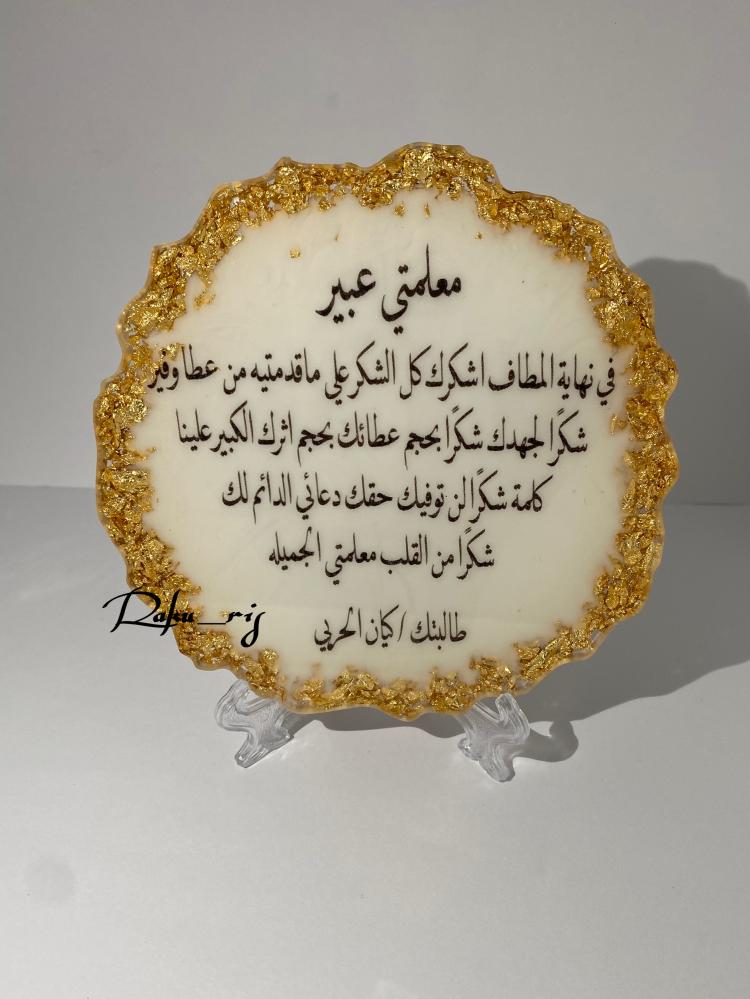 معلمتي عبير
في نهاية المطاف اشكرك كل الشكر علي ماقدمتيه من عطا وفير
شكرًا لجهدك شكرًا بحجم عطائك بحجم اثرك الكبير علينا
كلمة شكرًا لن توفيك حقك دعائي الدائم لك
شكرًا من القلب معلمتي الجميله
طالبتك / كيان الحربي
Raku_rij